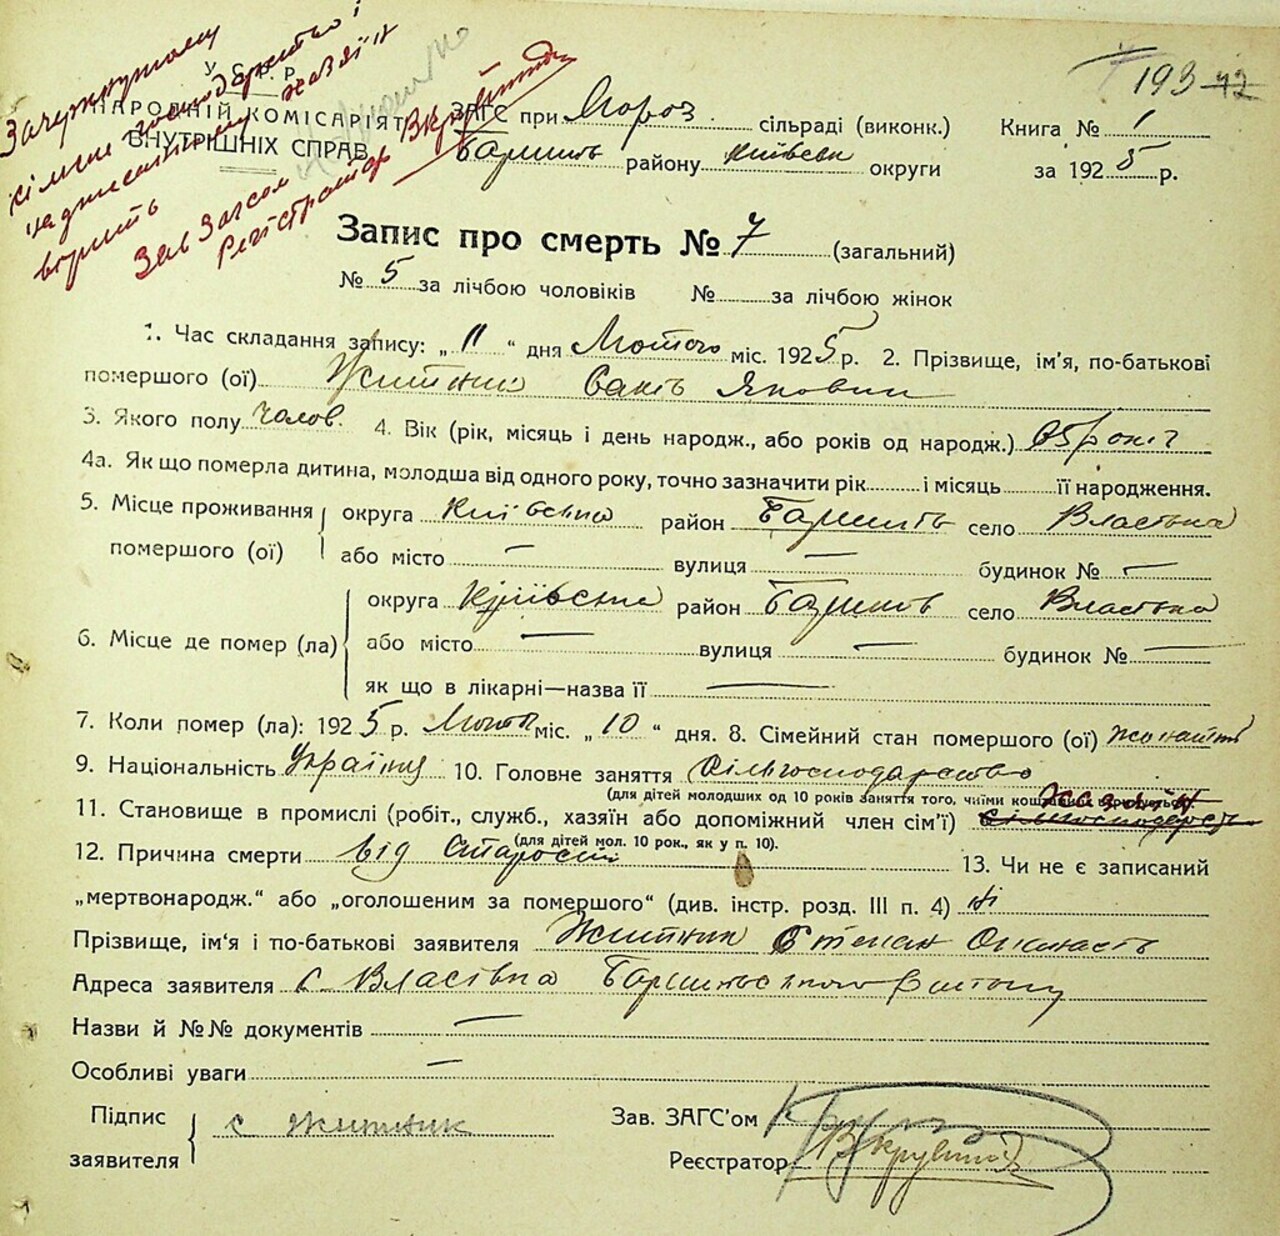 193 42
У. С. Р. Р.
НАРОДНІЙ КОМІСАРІЯТ
ВНУТРІШНІХ СПРАВ
Закреслену
сільське господарство і
надписаному хазяїн
вірить
Зав Загсом
Реєстратор
ЗАГС при Мороз сільраді (виконк.)
Баришів району Київськ округи
Книга № 1
за 1925 р.
Запис про смерть № 7 (загальний)
№ 5 за лічбою чоловіків № за лічбою жінок
1. Час складання запису: „11“ дня Лютого міс. 1925 р. 2. Прізвище, ім'я, по-батькові
помершого (ої) Житник Якович
3. Якого полу чолов. 4. Вік (рік, місяць і день народж., або років од народж.) 65 років
4а. Як що померла дитина, молодша від одного року, точно зазначити рік і місяць її народження.
5. Місце проживання помершого (ої) округа Київська район Баришів село Власівка
або місто — вулиця — будинок № —
6. Місце де помер (ла) округа Київська район Баришів село Власівка
або місто — вулиця — будинок № —
як що в лікарні—назва її —
7. Коли помер (ла): 1925 р. Лютого міс. „10“ дня. 8. Сімейний стан помершого (ої) жонатий
9. Національність Україну 10. Головне заняття Сільгосподарство
(для дітей молодших од 10 років заняття того, чиїми коштами годується)
11. Становище в промислі (робіт., служб., хазяїн або допоміжний член сім'ї) сільгосподарст хазяїн
(для дітей мол. 10 рок., як у п. 10).
12. Причина смерти від Старости 13. Чи не є записаний
„мертвонародж.“ або „оголошеним за помершого“ (див. інстр. розд. III п. 4) ні
Прізвище, ім'я і по-батькові заявителя Житник Степан
Адреса заявителя с. Власівка Баришівського Району
Назви й №№ документів —
Особливі уваги —
Підпис заявителя с Житник
Зав. ЗАГС'ом
Реєстратор